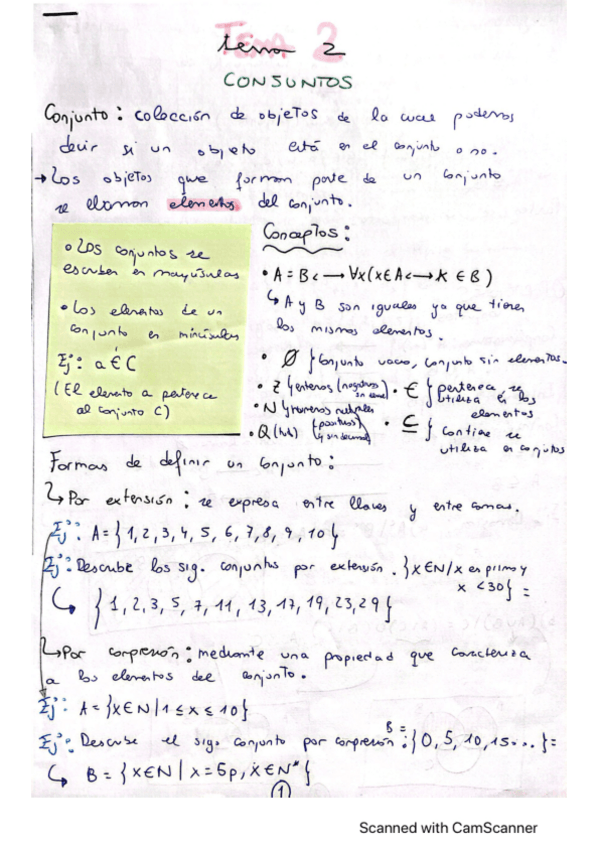 TEMA 2
tema 2
CONJUNTOS
Conjunto: colección de objetos de la cual podemos
decir si un objeto está en el conjunto o no.
→ Los objetos que forman parte de un conjunto
se llaman elementos del conjunto.
• Los conjuntos se
escriben en mayúsculas
• Los elementos de un
conjunto en minúsculas
Ej: a ∈ C
(El elemento a pertenece
al conjunto C)
Conceptos:
• A = B ↔ ∀x(x∈A ↔ x ∈ B)
↳ A y B son iguales ya que tienen
los mismos elementos.
• ∅ } Conjunto vacio, conjunto sin elementos.
• Z } enteros (negativos
• N } números naturales
(positivos
y sin decimal
• Q
• ∈ } pertenece, se
utiliza en los
elementos
• ⊆ } Contiene se
utiliza en conjuntos
Formas de definir un conjunto:
↳ Por extensión: se expresa entre llaves y entre comas.
Ej: A = { 1, 2, 3, 4, 5, 6, 7, 8, 9, 10 }
Ej: Describe los sig. conjuntos por extensión. {x∈N/x es primo y
x <30} =
↳ { 1, 2, 3, 5, 7, 11, 13, 17, 19, 23, 29 }
↳ Por compresión: mediante una propiedad que caracteriza
a los elementos del conjunto.
Ej: A = {x∈N | 1 ≤ x ≤ 10}
Ej: Describe el sig. conjunto por compresión: B = {0, 5, 10, 15... } =
↳ B = { x∈N | x = 5p, x∈N* }
1
Scanned with CamScanner